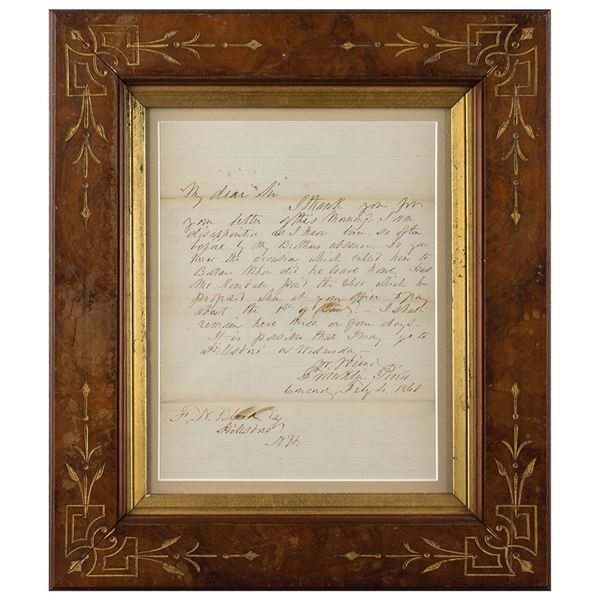 My dear Sir
I thank you for
your letter of this morning. I am
disappointed as I have been so often
before by my Brothers absence. Do you
know the occasion which called him to
Boston. When did he leave home. Has
Mr Kimball paid the which he
proposed when at your office to pay
about the 1st of I shall
remain here three or four days—
It is possible that I may go to
Hillsboro on Wednesday—
Yr friend
Franklin Pierce
Concord, July 2, 1860
F. N. Blood Esq
Hillsboro
N.H.